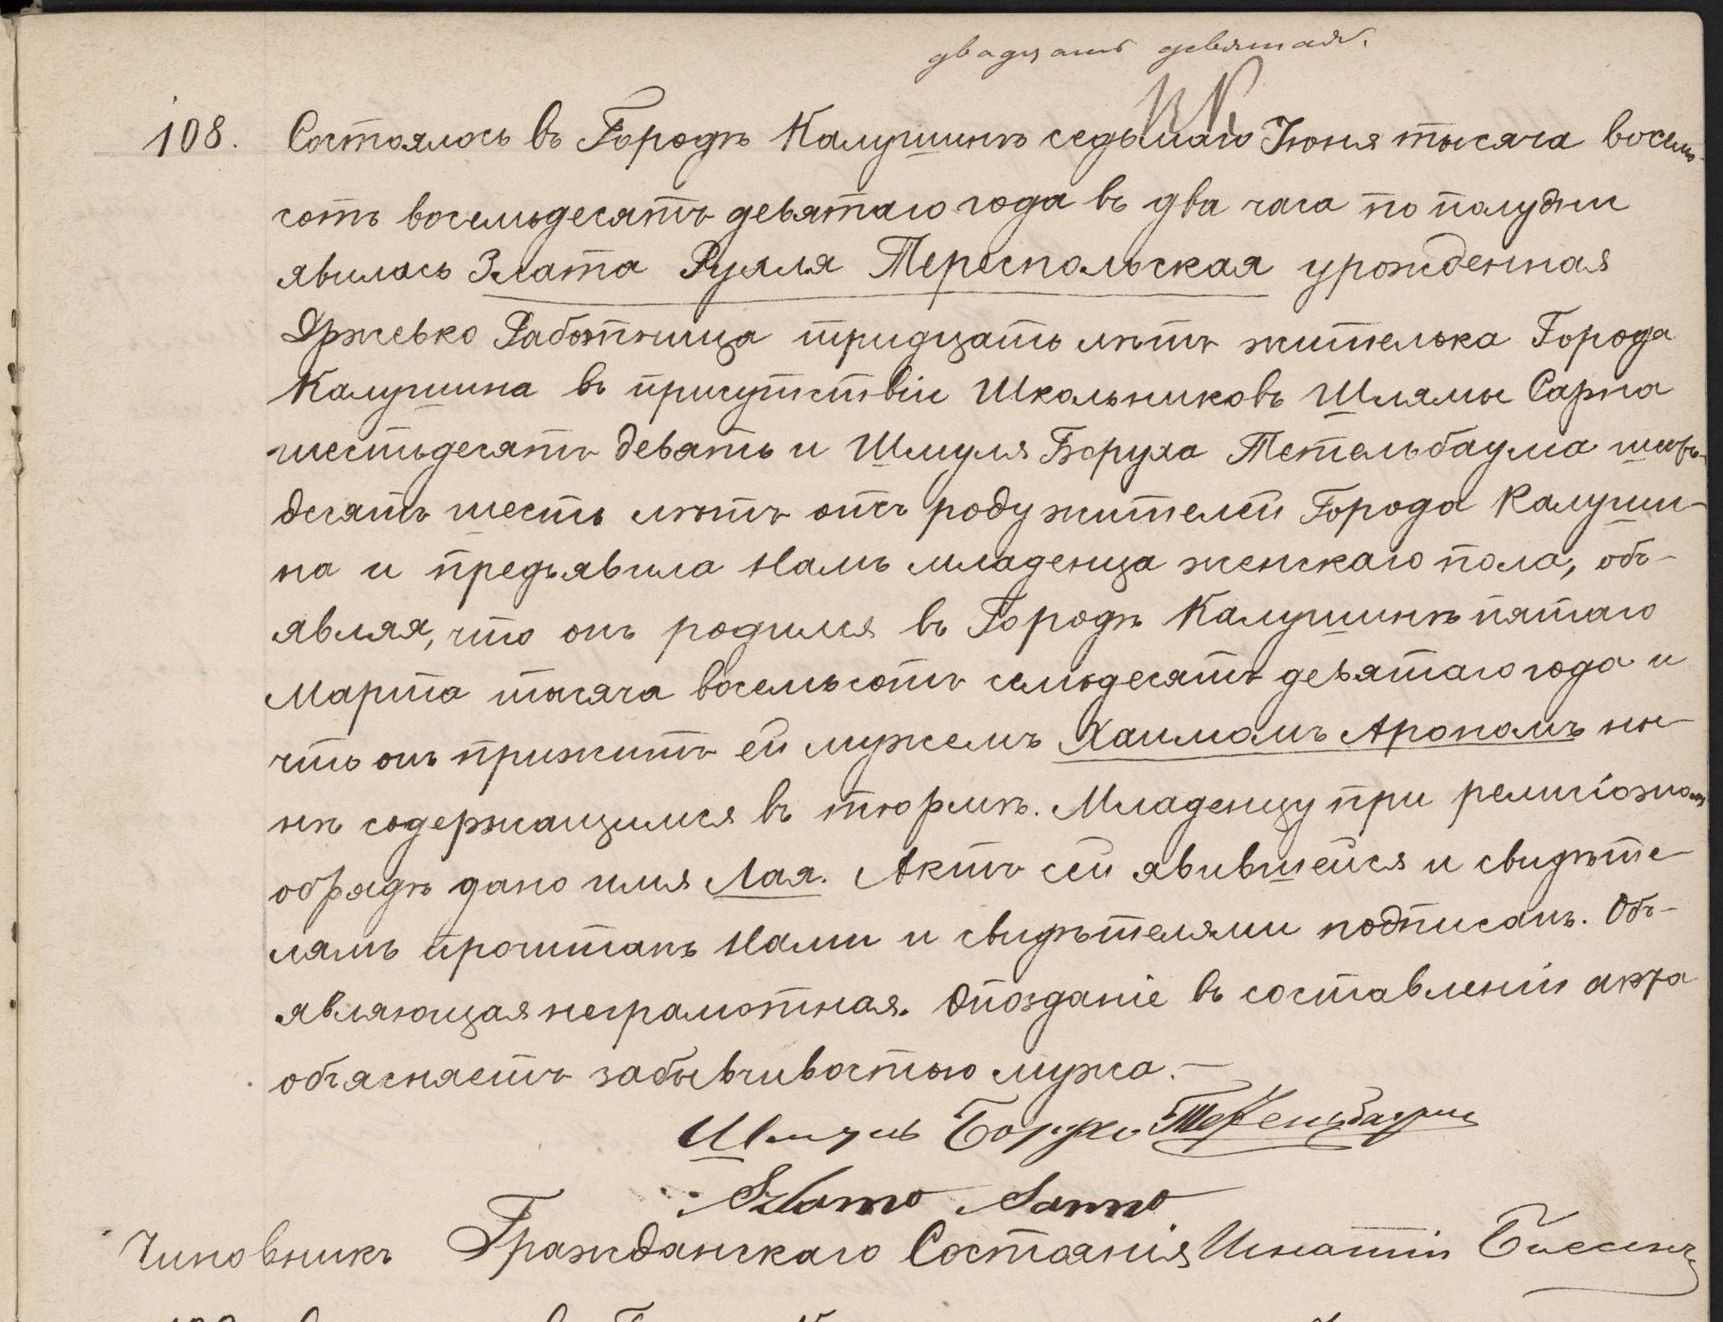 двадцать девятая.
108. Состоялось въ Городѣ Калушинѣ седьмаго Іюня тысяча восемь-
сотъ восемьдесятъ девятаго года въ два часа по полудни
явилась Злата Рухля Тереспольская урожденная
Яржевко Работница тридцать лѣтъ жителька Города
Калушина въ присутствіи Школьниковъ Шлямы Сарна
шестьдесятъ девять и Шмуля Боруха Тетельбаума шесть-
десятъ шесть лѣтъ отъ роду жителей Города Калуши-
на и предъявила Намъ младенца женскаго пола, объ-
являя, что онъ родился въ Городѣ Калушинѣ пятаго
Марта тысяча восемьсотъ семьдесятъ девятаго года и
что онъ прижитъ ей мужемъ Хаимомъ Арономъ ны-
нѣ содержащимся въ тюрьмѣ. Младенцу при религіозномъ
обрядѣ дано имя Лая. Актъ сей явившейся и свидѣте-
лямъ прочитанъ Нами и свидѣтелями подписанъ. Объ-
являющая неграмотная. Опозданіе въ составленіи акта
объясняетъ забывчивостью мужа.—
Шмуль Борух Тетельбаум
Szlama Sarna
Чиновникъ Гражданскаго Состоянія